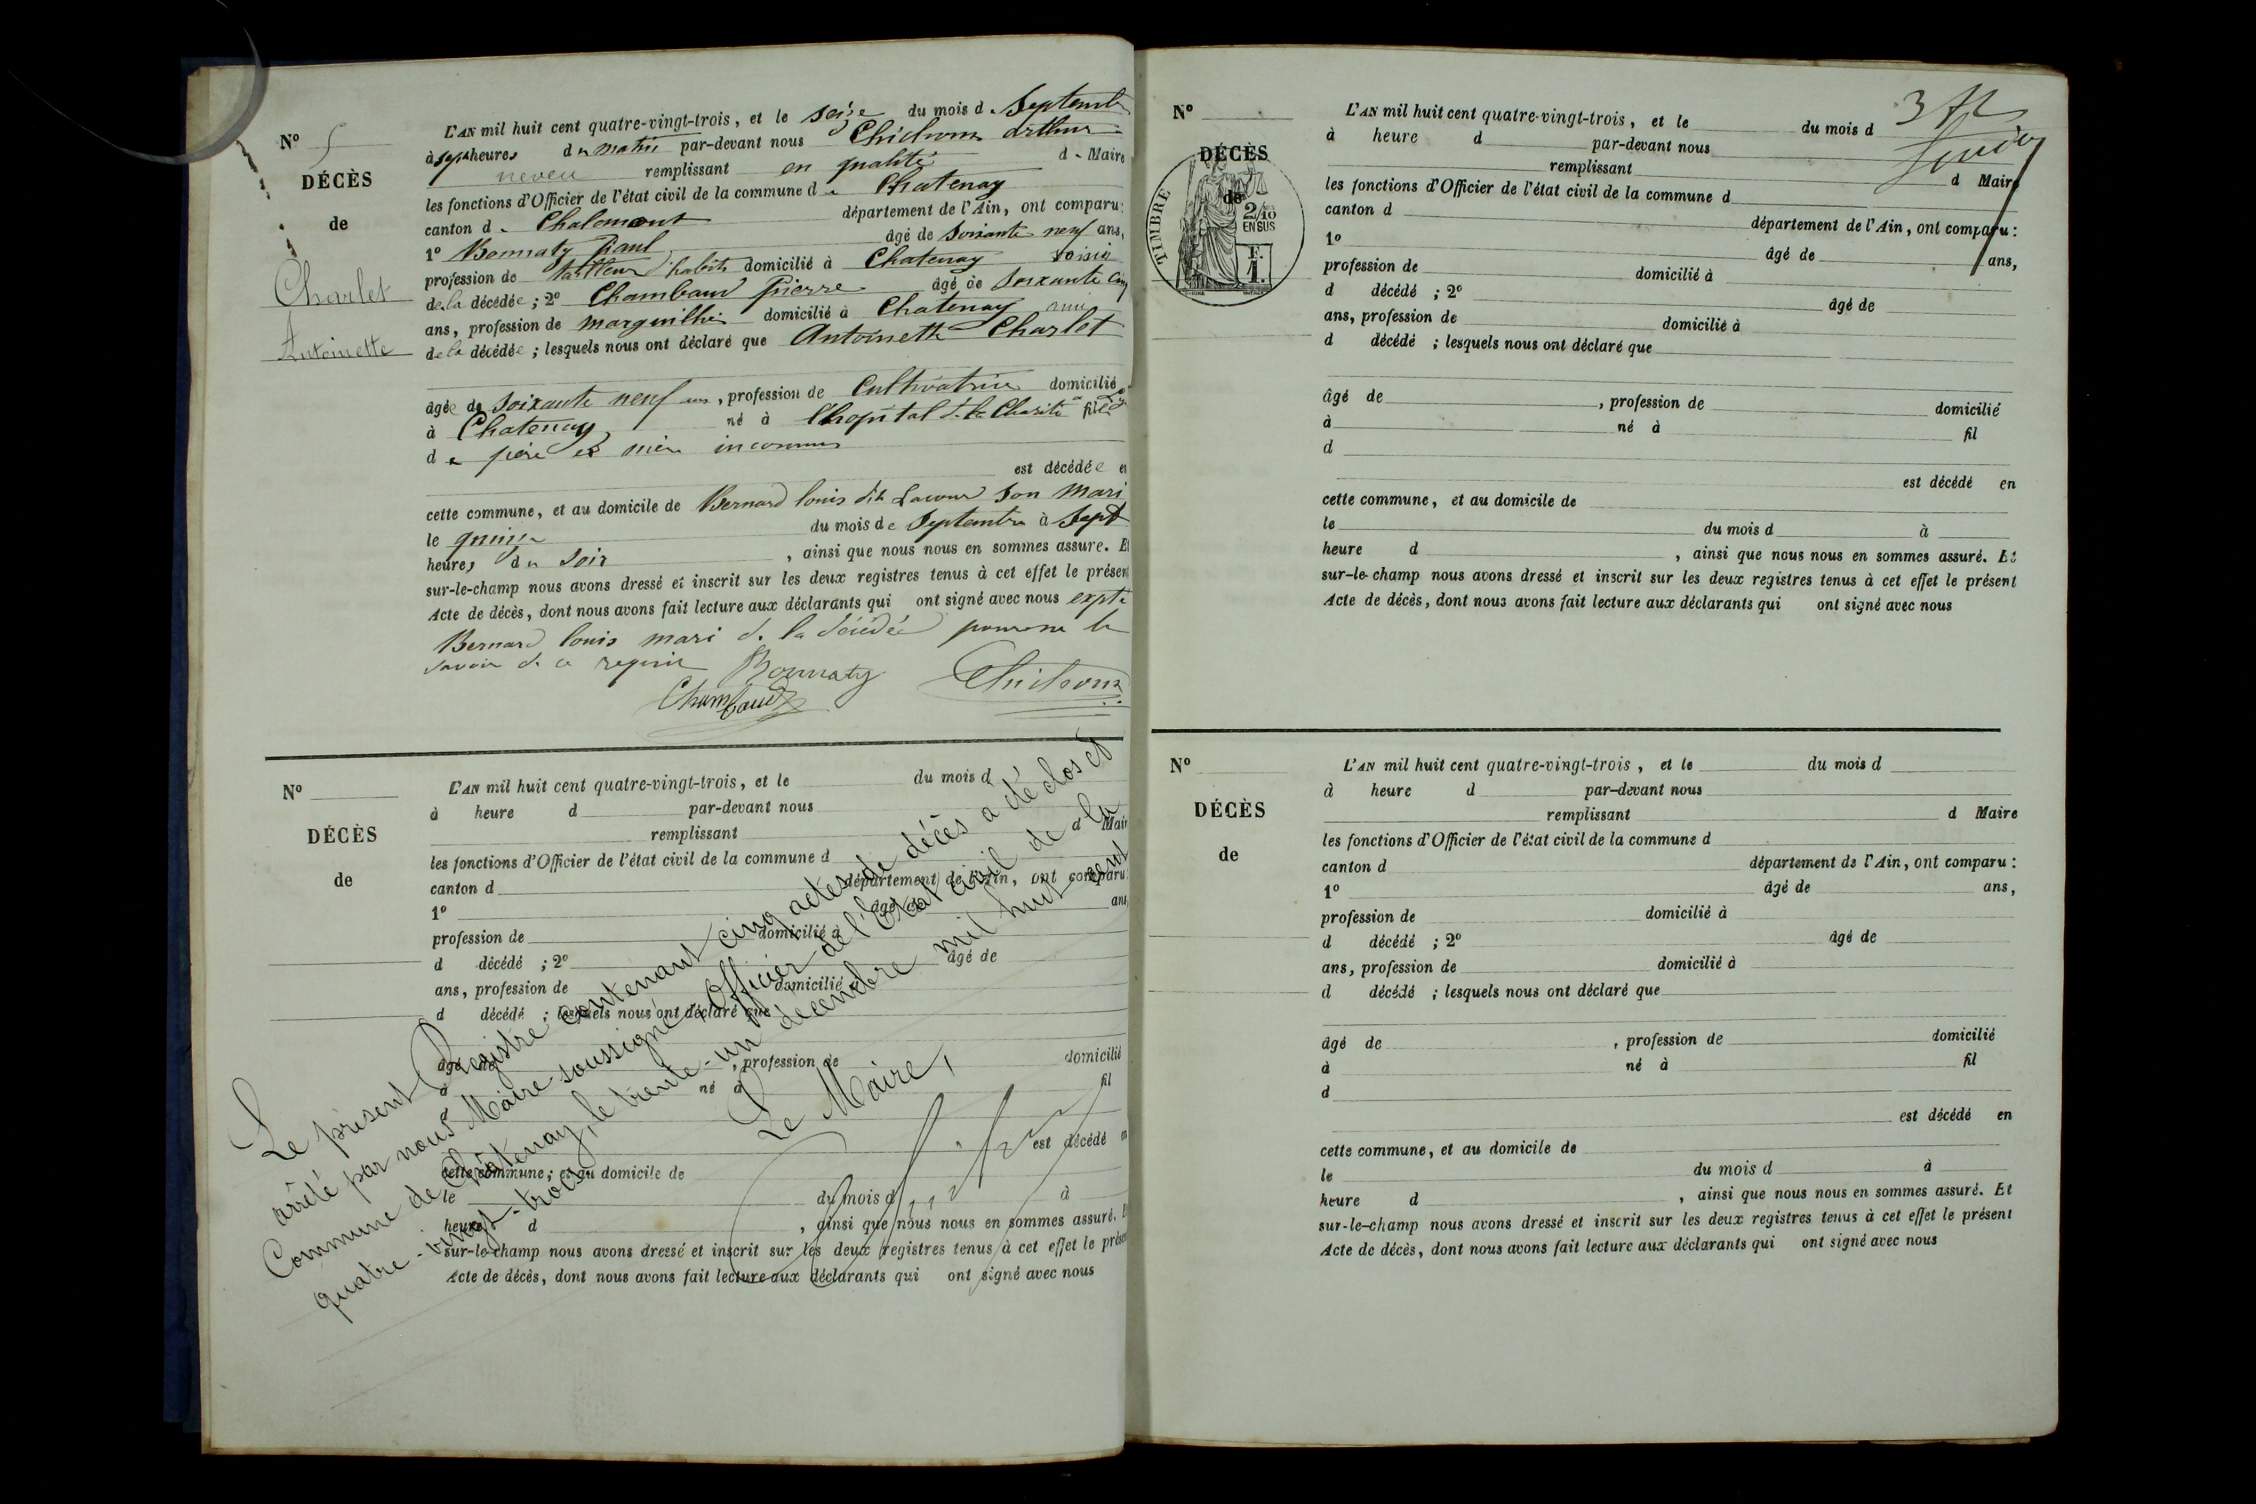 N° 5
DÉCÈS
de
Charlet
Antoinette
L'AN mil huit cent quatre-vingt-trois, et le seize du mois d. Septemb
à sept heures du matin par-devant nous Chichoux arthur
neveu remplissant en qualité d. Maire
les fonctions d'Officier de l'état civil de la commune de Chatenay
canton d. Chalamont département de l'Ain, ont comparu:
1° Bonnaty Paul âgé de Soixante neuf ans,
profession de tailleur d'habits domicilié à Chatenay voisin
de la décédée; 2° Chambaud Pierre âgé de Soixante cinq
ans, profession de marguillier domicilié à Chatenay ami
de la décédée; lesquels nous ont déclaré que Antoinette Charlet
âgée de soixante neuf ans, profession de Cultivatrice domicilié
à Chatenay né à l'hopital de la Charité fille
de père et mère inconnus
est décédée en
cette commune, et au domicile de Bernard louis dit Lacour son mari
le quinze du mois de Septembre à Sept
heures du Soir, ainsi que nous nous en sommes assuré. Et
sur-le-champ nous avons dressé et inscrit sur les deux registres tenus à cet effet le présent
Acte de décès, dont nous avons fait lecture aux déclarants qui ont signé avec nous expte
Bernard louis mari de la décédée pour ne le
savoir de ce requis Bonnaty
Chambaud
N°
DÉCÈS
de
L'AN mil huit cent quatre-vingt-trois, et le du mois d
à heure d par-devant nous
remplissant d Mair
les fonctions d'Officier de l'état civil de la commune d
canton d département de l'Ain, ont comparu:
1° âgé de ans
profession de domicilié à
d décédé ; 2° âgé de
ans, profession de domicilié à
d décédé ; lesquels nous ont déclaré que
âgé de , profession de domicilié
à né à fil
d
est décédé en
cette commune, et au domicile de
le du mois d à
heure d , ainsi que nous nous en sommes assuré.
sur-le-champ nous avons dressé et inscrit sur les deux registres tenus à cet effet le prése
Acte de décès, dont nous avons fait lecture aux déclarants qui ont signé avec nous
Le présent Registre contenant cinq actes de décès a été clos et
arrêté par nous Maire soussigné, Officier de l'Etat civil de la
Commune de Châtenay, le trente-un décembre mil huit cent
quatre-vingt-trois.
Le Maire,
N°
DÉCÈS
de
TIMBRE
2/10
EN SUS
F.
1.
3 f
L'AN mil huit cent quatre-vingt-trois, et le du mois d
à heure d par-devant nous
remplissant d Maire
les fonctions d'Officier de l'état civil de la commune d
canton d département de l'Ain, ont comparu:
1° âgé de ans,
profession de domicilié à
d décédé ; 2° âgé de
ans, profession de domicilié à
d décédé ; lesquels nous ont déclaré que
âgé de , profession de domicilié
à né à fil
d
est décédé en
cette commune, et au domicile de
le du mois d à
heure d , ainsi que nous nous en sommes assuré. Et
sur-le-champ nous avons dressé et inscrit sur les deux registres tenus à cet effet le présent
Acte de décès, dont nous avons fait lecture aux déclarants qui ont signé avec nous
N°
DÉCÈS
de
L'AN mil huit cent quatre-vingt-trois, et le du mois d
à heure d par-devant nous
remplissant d Maire
les fonctions d'Officier de l'état civil de la commune d
canton d département de l'Ain, ont comparu:
1° âgé de ans,
profession de domicilié à
d décédé ; 2° âgé de
ans, profession de domicilié à
d décédé ; lesquels nous ont déclaré que
âgé de , profession de domicilié
à né à fil
d
est décédé en
cette commune, et au domicile de
le du mois d à
heure d , ainsi que nous nous en sommes assuré. Et
sur-le-champ nous avons dressé et inscrit sur les deux registres tenus à cet effet le présent
Acte de décès, dont nous avons fait lecture aux déclarants qui ont signé avec nous